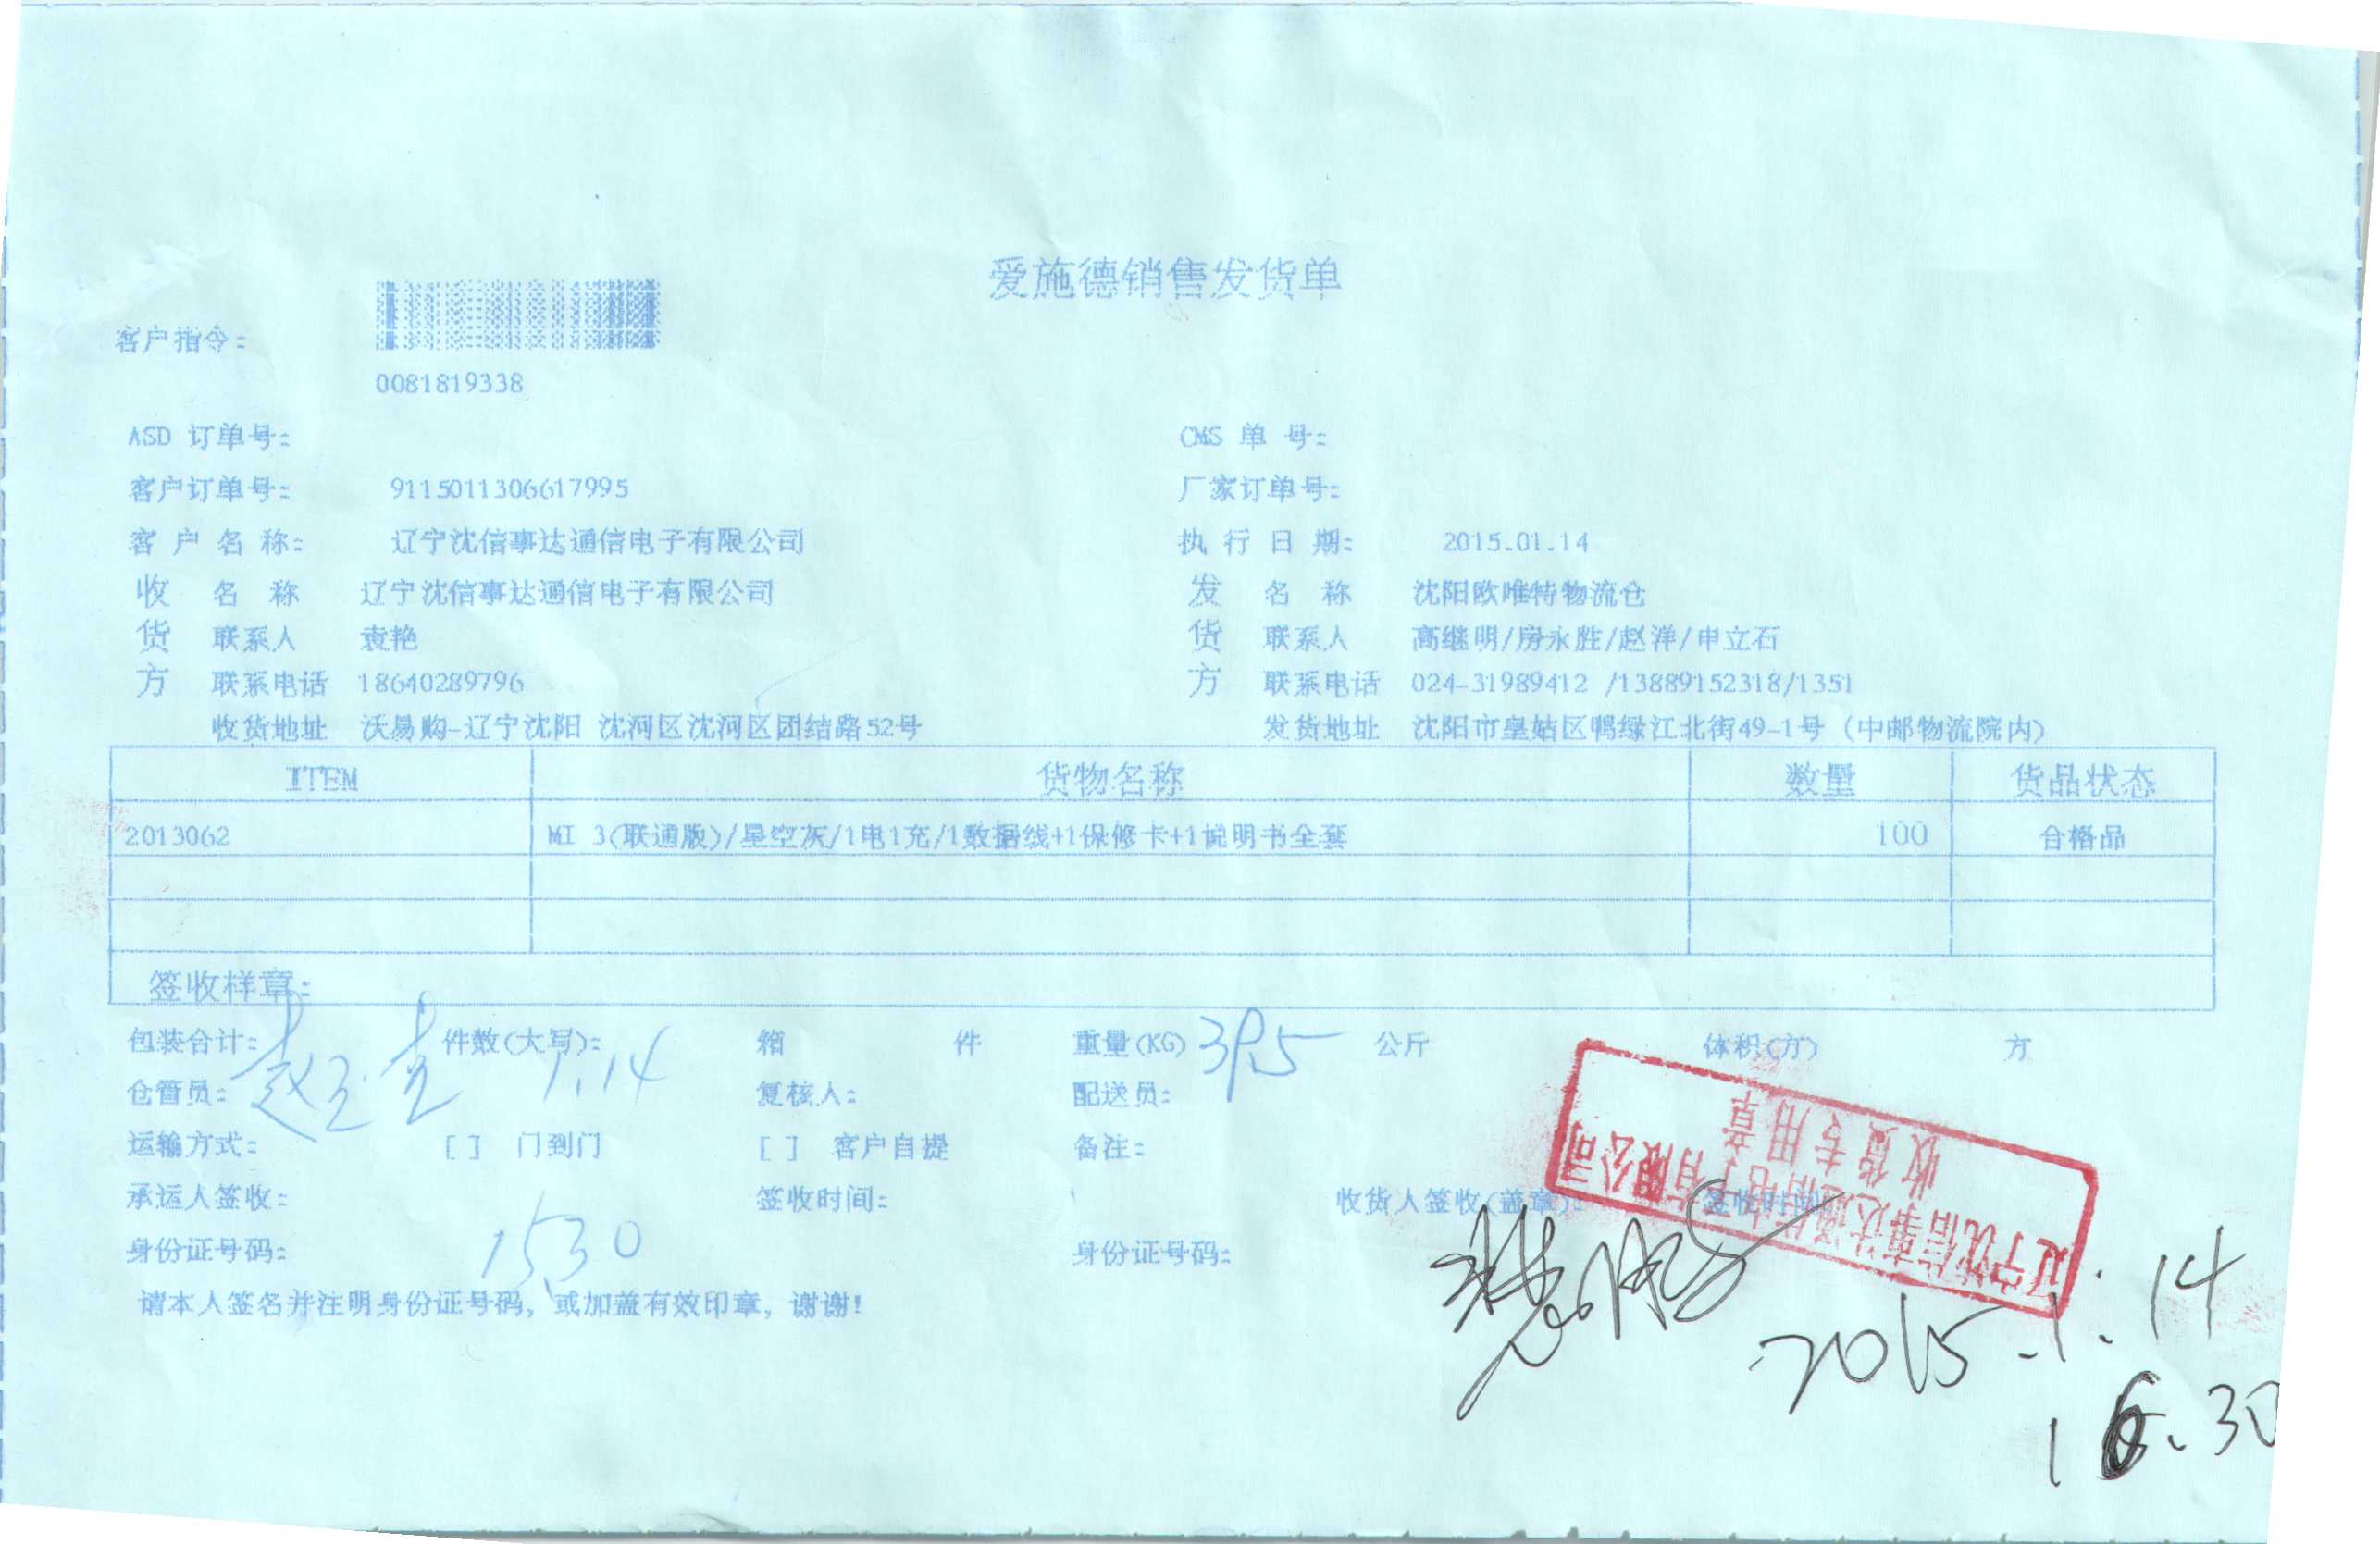 爱施德销售发货单
客户指令:
0081819338
ASD 订单号: CMS 单 号:
客户订单号: 9115011306617995 厂家订单号:
客 户 名 称: 辽宁沈信事达通信电子有限公司 执 行 日 期: 2015.01.14
收 名 称 辽宁沈信事达通信电子有限公司 发 名 称 沈阳欧唯特物流仓
货 联系人 袁艳 货 联系人 高继明/房永胜/赵洋/申立石
方 联系电话 18640289796 方 联系电话 024-31989412 /13889152318/1351
收货地址 沃易购-辽宁沈阳 沈河区沈河区团结路52号 发货地址 沈阳市皇姑区鸭绿江北街49-1号 (中邮物流院内)
ITEM 货物名称 数量 货品状态
2013062 MI 3(联通版)/星空灰/1电1充/1数据线+1保修卡+1说明书全套 100 合格品
签收样章:
包装合计: 件数(大写): 箱 件 重量(KG) 39.5 公斤 体积(方) 方
仓管员: 1.14 复核人: 配送员:
运输方式: [ ] 门到门 [ ] 客户自提 备注:
承运人签收: 签收时间: 收货人签收(盖章): 签收时间
身份证号码: 1530 身份证号码:
请本人签名并注明身份证号码, 或加盖有效印章, 谢谢!
辽宁沈信事达通信电子有限公司
收货专用章
2015.1.14
16.30